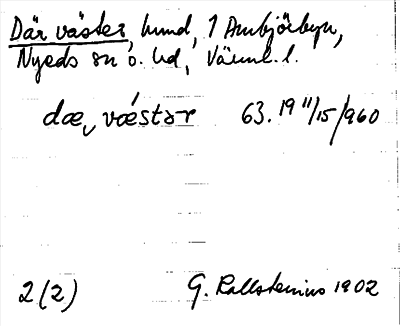 Där väster, hmd, 1 Ambjörbyn,
Nyeds sn o. hd, Värml. l.
dæ, vǽstər 63. 19 11/15/960
2(2) G. Kallstenius 1902